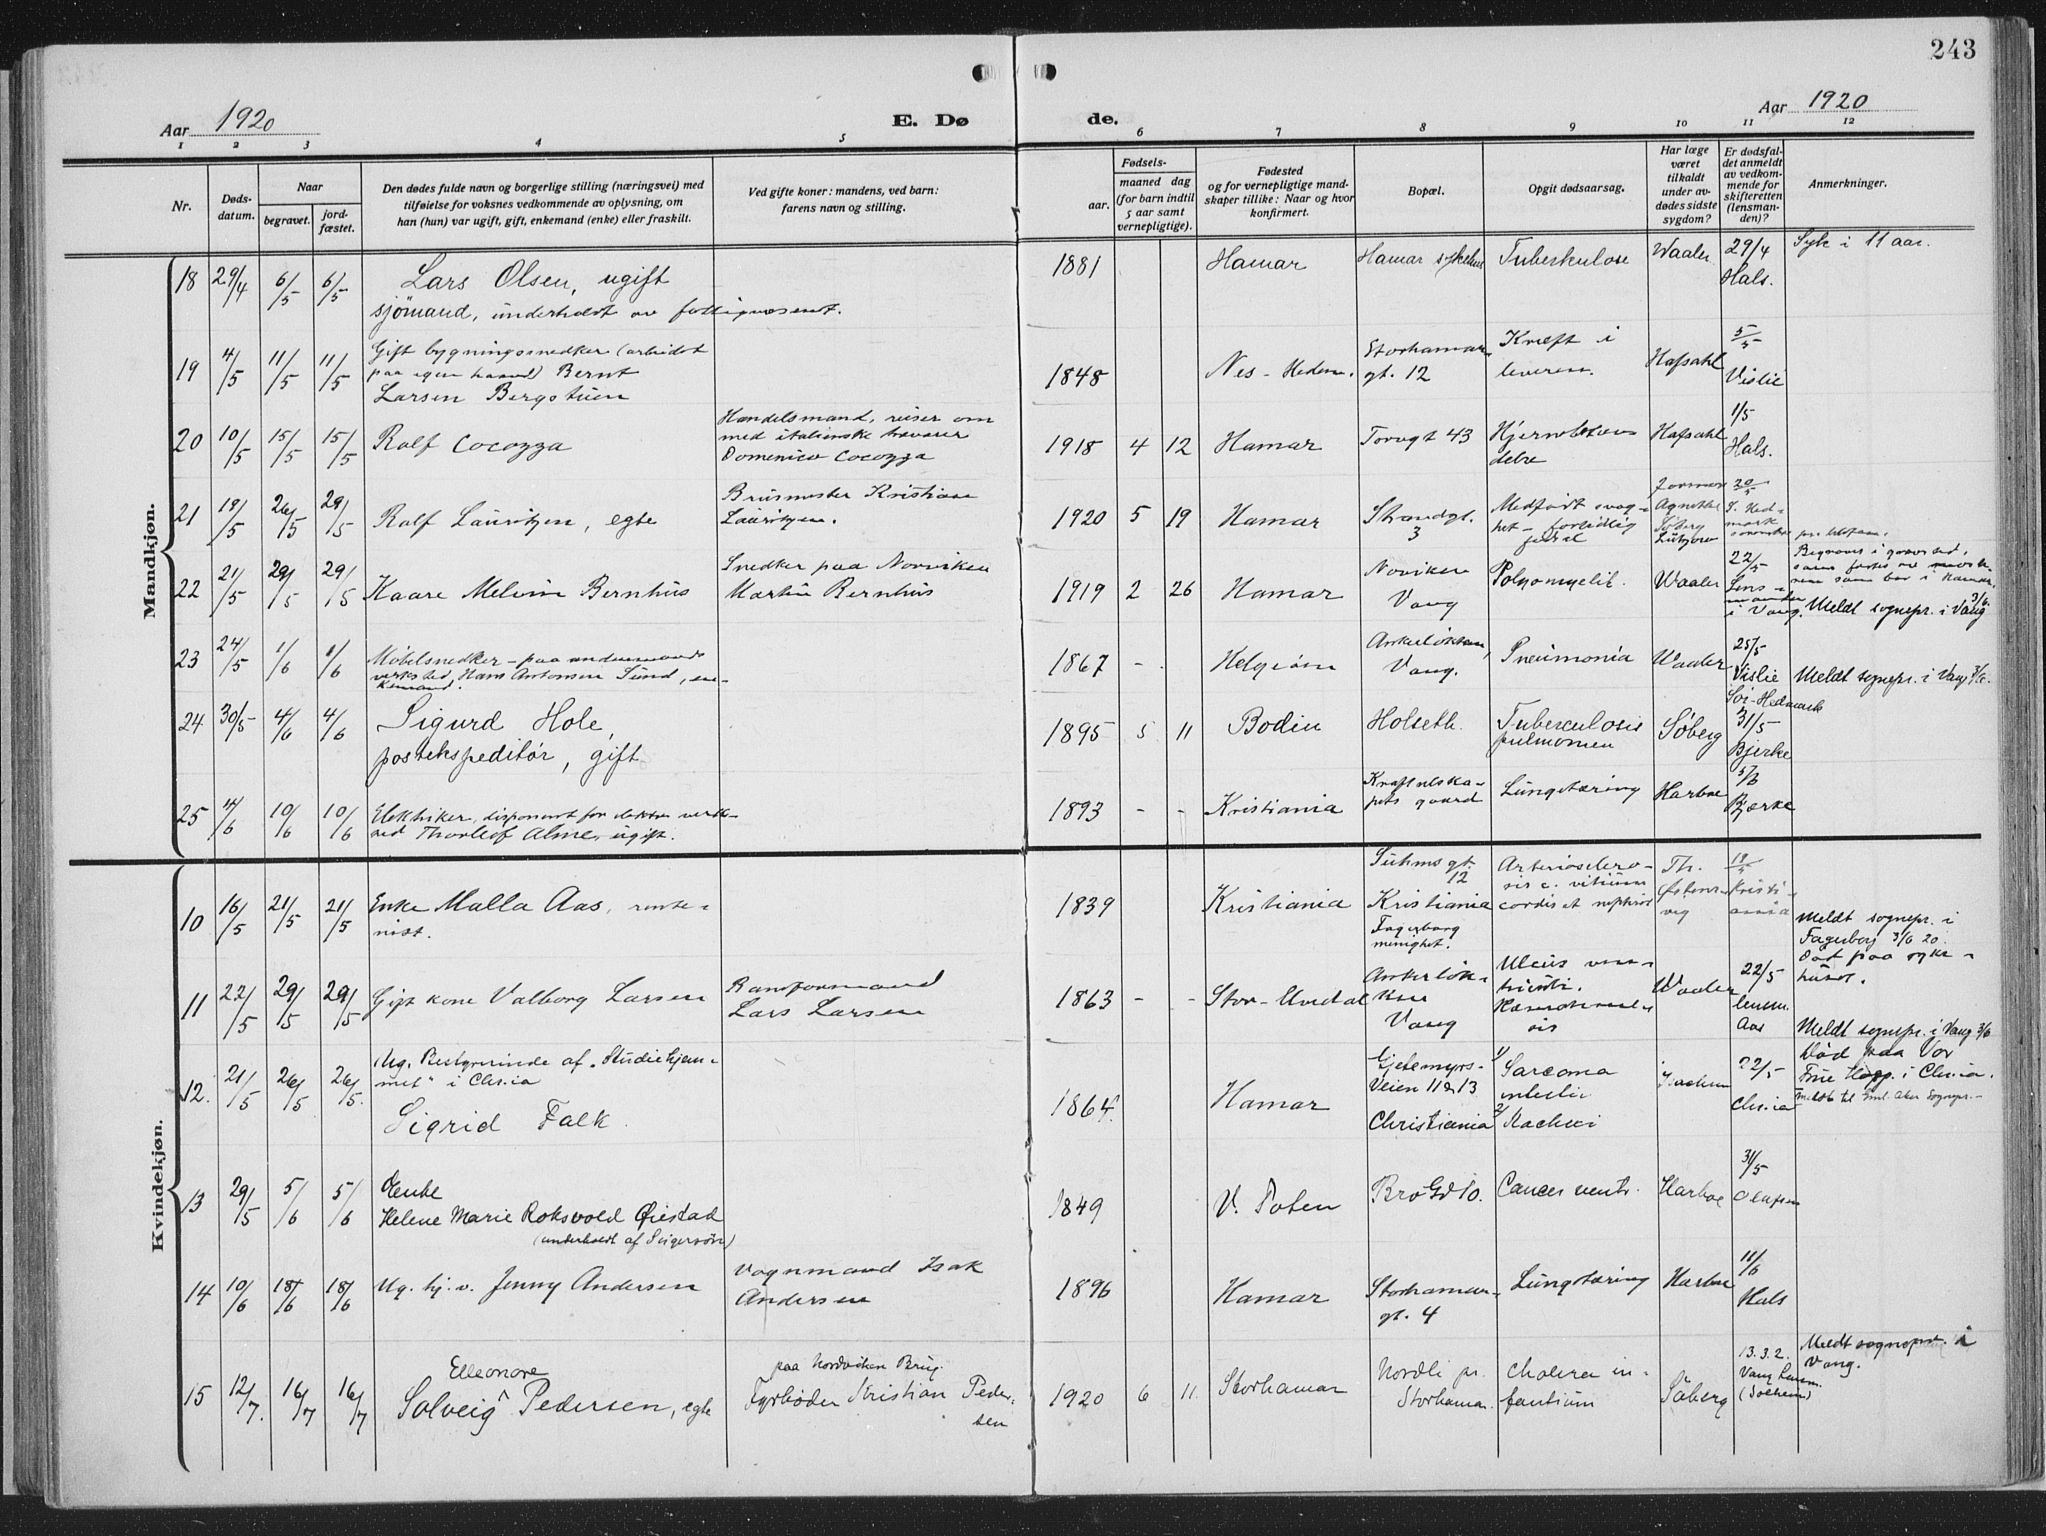 243
Aar 1920
E. Dø
de.
Aar 1920
1 2 3 4 5 6 7 8 9 10 11 12
Nr.
Døds-
datum.
Naar
begravet.
jord-
fæstet.
Den dødes fulde navn og borgerlige stilling (næringsvei) med
tilføielse for voksnes vedkommende av oplysning, om
han (hun) var ugift, gift, enkemand (enke) eller fraskilt.
Ved gifte koner: mandens, ved barn:
farens navn og stilling.
Fødsels-
aar.
maaned dag
(for barn indtil
5 aar samt
vernepligtige).
Fødested
og for vernepligtige mand-
skaper tillike: Naar og hvor
konfirmert.
Bopæl.
Opgit dødsaarsag.
Har læge
været
tilkaldt
under av-
dødes sidste
sygdom?
Er dødsfal-
det anmeldt
av vedkom-
mende for
skifteretten
(lensman-
den)?
Anmerkninger.
Mandkjøn.
18 29/4 6/5 6/5 Lars Olsen, ugift
sjømand, underholdt av fattigvæsenet.
1881 Hamar Hamar sykehus Tuberkulose Waaler 29/4
Hals.
Syk i 11 aar.
19 4/5 11/5 11/5 Gift bygningssnedker (arbeidet
paa egen haand) Bernt
Larsen Bergstuen
1848 Nes - Hedem. Storhamar
gt. 12
Kræft i
leveren.
Hafsahl 5/5
Vislie
20 10/5 15/5 15/5 Rolf Cocozza
Handelsmand, reiser om
med italienske
Domenico Cocozza
1918 4 12 Hamar Torvgt 43 Hafsahl 1/5
Hals.
21 19/5 26/5 29/5 Rolf Lauritzen, egte
Kristian
Lauritzen.
1920 5 19 Hamar Strandgt.
3
Medfødt svag-
het - fortidlig
Jormor
Agnethe
20/5
22 21/5 29/5 29/5 Kaare Melvin Bernhus
Snedker paa Norviken
Martin Bernhus
1919 2 26 Hamar Noviken
Vang
Polyomyelit. Waaler 22/5
Lens-
manden
i Vang.
Meldt sognepr. i Vang 3/6.
23 24/5 1/6 1/6 Møbelsnedker - paa andenmands
verksted, Hans Antonsen Sund, en-
kemand.
1867 - . Helgøen Ankerløkken,
Vang.
Pneumonia Waaler 25/5
Vislie
Meldt sognepr. i Vang 3/6.
Sør-Hedmark
24 30/5 4/6 4/6 Sigurd Hole,
postekspeditør, gift
1895 5 11 Bodin Holseth. Tuberculosis
pulmonum
Søberg 31/5
Bjerke
25 4/6 10/6 10/6 Elektriker, disponent for elektro verk-
sted Thorleif Alme, ugift.
1893 - - Kristiania Kraftselska-
pets gaard
Lungetæring Harboe 5/6
Bjerke
Kvindekjøn.
10 16/5 21/5 21/5 Enke Malla Aas, rente-
nist.
1839 Kristiania Suhms gt.
12
Kristiania
Fagerborg
menighet.
Arterioselero-
sis c. vitium
cordis et
Th.
Østens-
vig
18/5
Kristi-
ania
Meldt sognepr. i
Fagerborg 3/6 20.
11 22/5 29/5 29/5 Gift kone Valborg Larsen
Banformand
Lars Larsen
1863 - - Stor-Elvedal Ankerløk-
ken
Vang
Ulcus ven-
triculi.
Waaler 22/5
lensm.
Aas
Død paa syke-
huset.
Meldt sognepr. i Vang 3/6
12. 21/5 26/5 26/5. Ug. Bestyrerinde af "Studiehjem-
met" i Chr.ia
Sigrid Falk.
1864. Hamar Gjetemyrs-
Veien 11 & 13
Christiania
1) Sarcoma
2) Kachexi
22/5
Chr.ia
Død paa Vor
Frue Hosp. i Chr.ia.
13 29/5 5/6 5/6 Enke
Helene Marie Roksvold Øiestad
(underholdt af Svigersøn)
1849 V. Toten Bro Gd 10. Cancer ventr. Harboe 31/5
Olufsen
14 10/6 18/6 18/6 Ug. hj. v. Jenny Andersen
Vognmand Isak
Andersen
1896 Hamar Storhamar-
gt. 4
Lungetæring Harboe 11/6
Hals
15 12/7. 16/7 16/7 Elleonore
Solveig ^ Pedersen, egte
paa Nordviken Brug.
Fyrbøder Kristian Peder-
sen
1920 6 11 Storhamar Nordli pr.
Storhamar.
Cholera in-
fantium
Søberg 13.3.2.
Vang Lensm.
(Solheim)
Meldt sognepr. i
Vang.